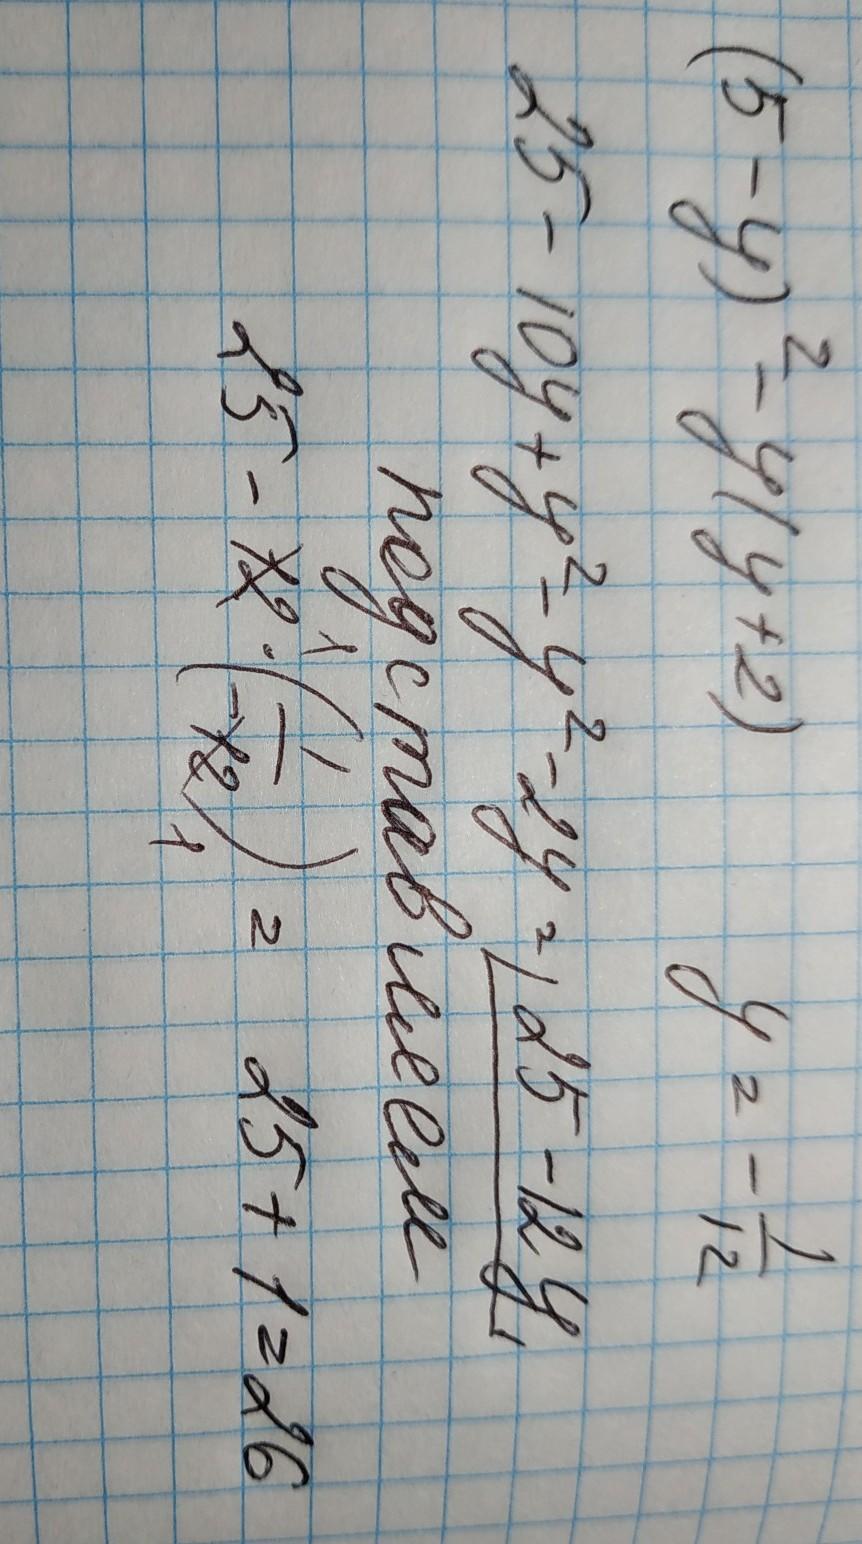 (5-y)² - y(y+2) y = -1/12
25 - 10y + y² - y² - 2y = 25 - 12y
подставляем
25 - 12 · (1/-12) = 25 + 1 = 26